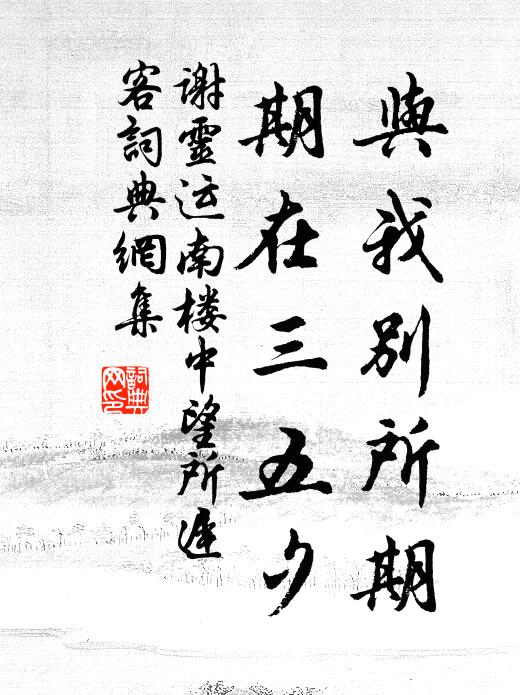 與我別所期
期在三五夕
谢靈运南楼中望所遲
客詞典網集
詞典
网印